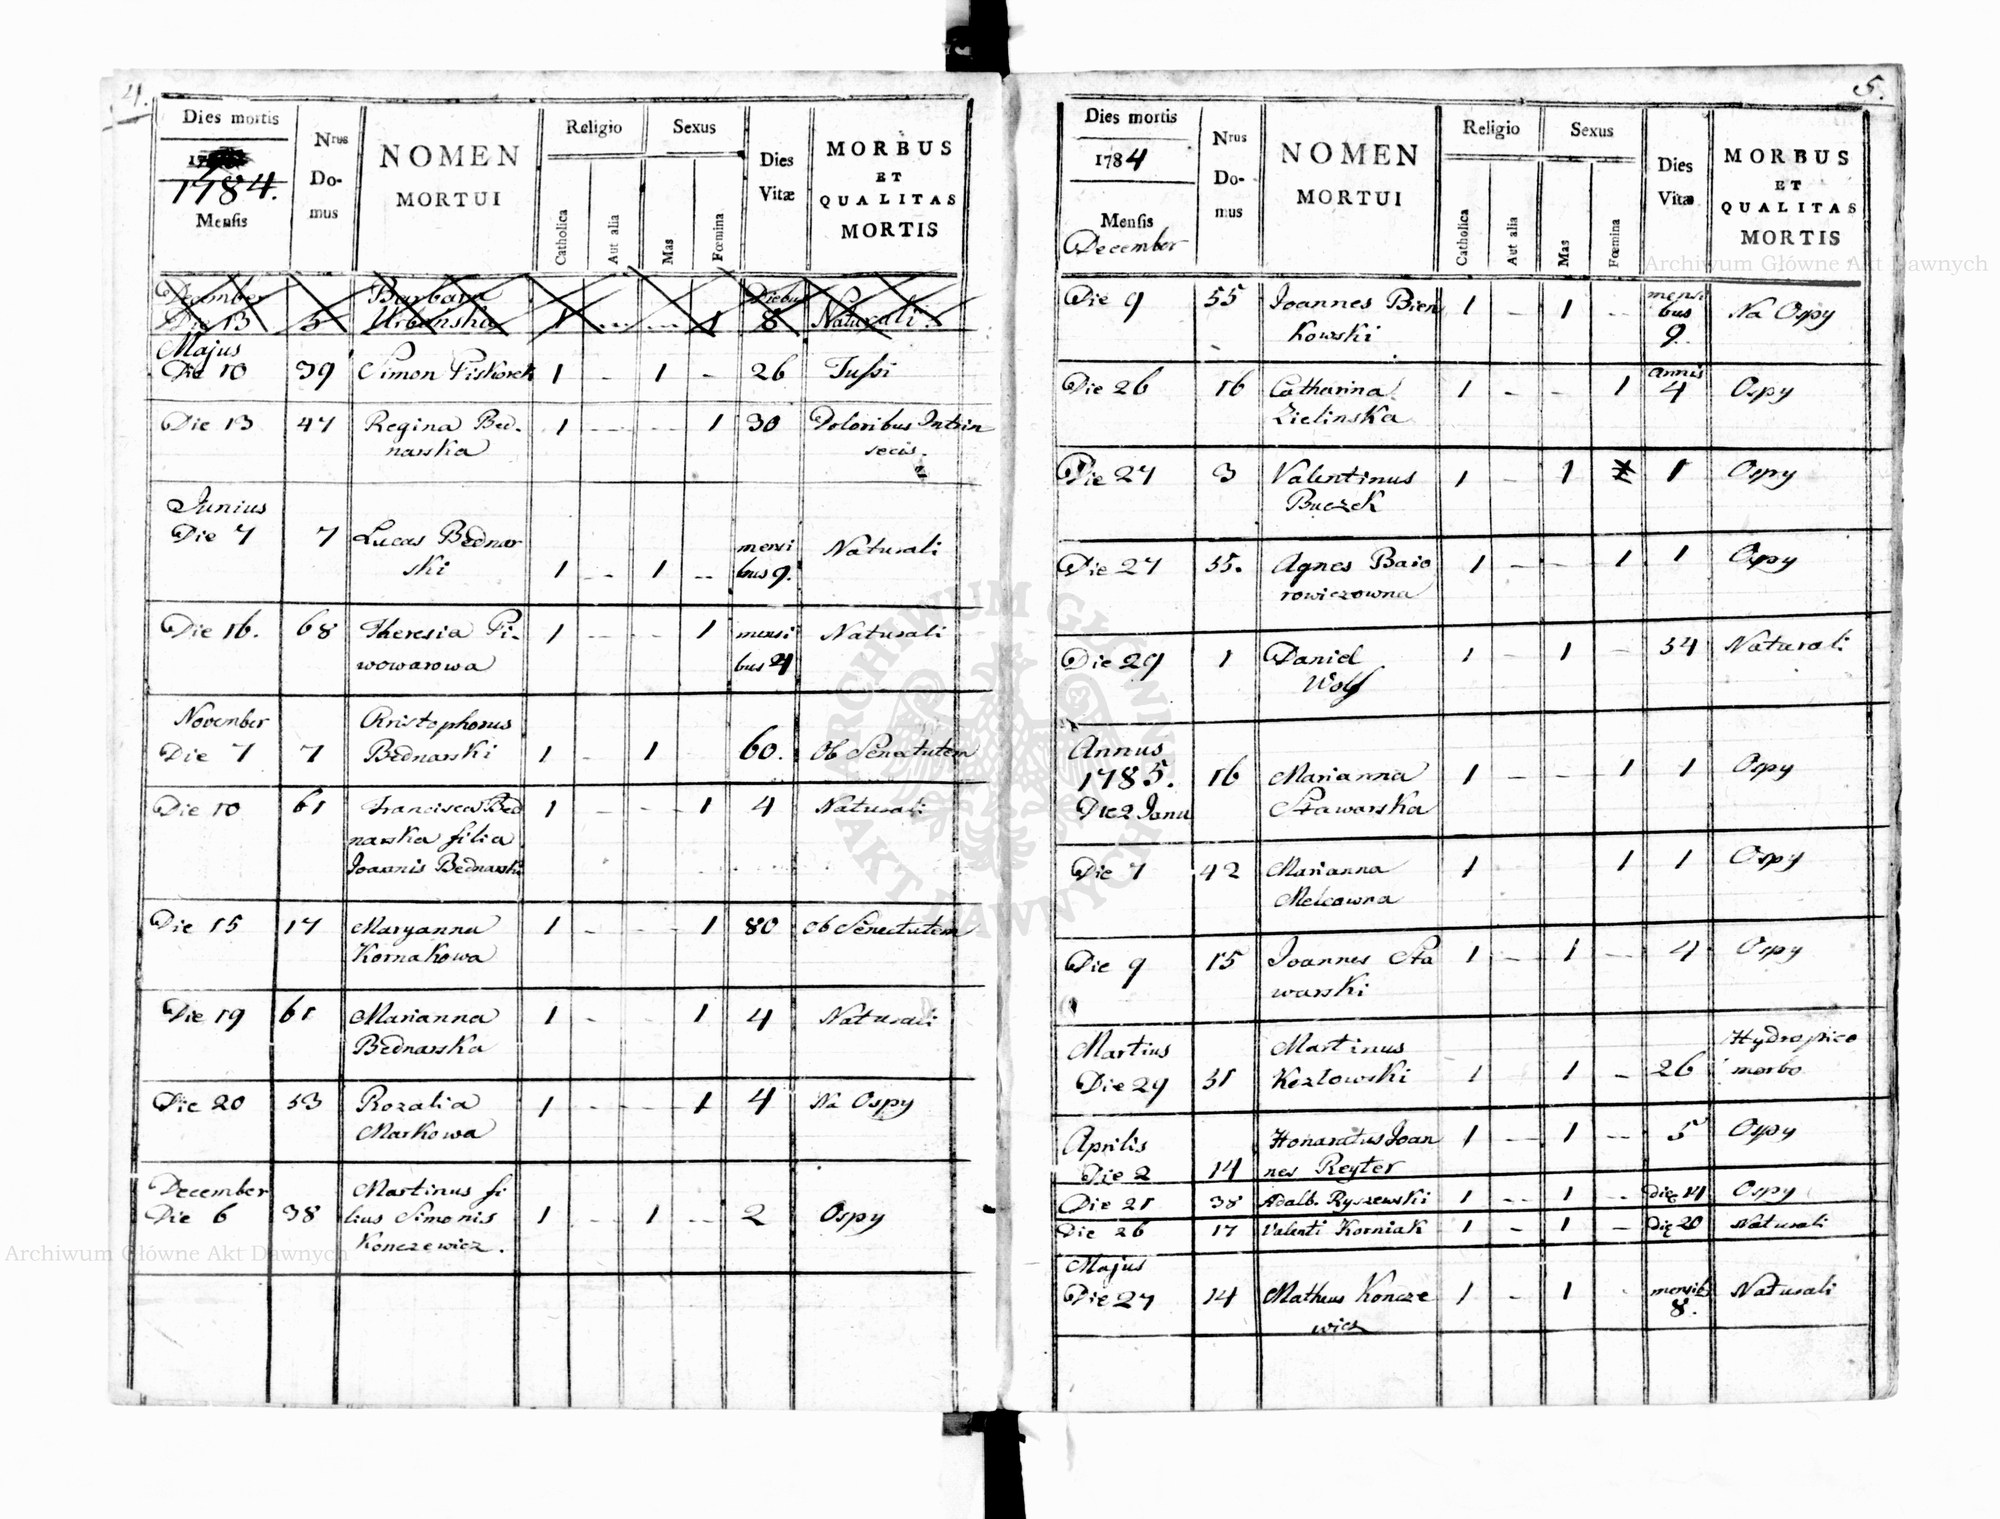 4.
Dies mortis
1784.
Mensis
Nrus Domus
NOMEN MORTUI
Religio
Catholica
Aut alia
Sexus
Mas
Fœmina
Dies Vitæ
MORBUS ET QUALITAS MORTIS
December Barbara Diebus
Die 13 5 Urbanska 1 1 8 Naturali.
Majus
Die 10 39 Simon Piskorek 1 - 1 - 26 Tussi
Die 13 47 Regina Bed- 1 1 30 Doloribus Intrin
narska secis.
Junius
Die 7 7 Lucas Bednar mensi Naturali
ski 1 1 bus 9.
Die 16. 68 Theresia Pi- 1 1 mensi Naturali
wowarowa bus 4
November Kristophorus
Die 7 7 Bednarski 1 1 60. Ob Senectutem
Die 10 61 Francisca Bed 1 1 4 Naturali
narska filia
Joannis Bednarski
Die 15 17 Maryanna 1 1 80 Ob Senectutem
Kornakowa
Die 19 61 Marianna 1 1 4 Naturali
Bednarska
Die 20 53 Rozalia 1 1 4 Na Ospy
Markowa
December Martinus fi
Die 6 38 lius Simonis 1 1 2 Ospy
Konczewicz.
5.
Dies mortis
1784
Mensis
December
Nrus Domus
NOMEN MORTUI
Religio
Catholica
Aut alia
Sexus
Mas
Fœmina
Dies Vitæ
MORBUS ET QUALITAS MORTIS
Die 9 55 Joannes Bien 1 - 1 mensi Na Ospy
kowski bus
9.
Die 26 16 Catharina 1 1 annis 4 Ospy
Zielinska
Die 27 3 Valentinus 1 - 1 1 Ospy
Buczek
Die 27 55. Agnes Baio 1 1 1 Ospy
rowiczowna
Die 29 1 Daniel 1 - 1 54 Naturali
Wolf
Annus
1785. 16 Marianna 1 1 1 Ospy
Die 2 Janu Stawarska
Die 7 42 Marianna 1 1 1 Ospy
Melcowna
Die 9 15 Joannes Sta 1 1 4 Ospy
warski
Martius Martinus Hydropico
Die 29 51 Kozłowski 1 1 - 26 morbo
Aprilis Honoratus Joan 1 1 5 Ospy
Die 2 14 nes Reyter
Die 21 38 Adalb. Ryszewski 1 1 Die 14 Ospy
Die 26 17 Valenti Korniak 1 - 1 Die 20 Naturali
Majus
Die 27 14 Matheus Koncze 1 - 1 mensib Naturali
wicz 8.
Archiwum Główne Akt Dawnych
Archiwum Główne Akt Dawnych
ARCHIWUM GŁÓWNE AKT DAWNYCH